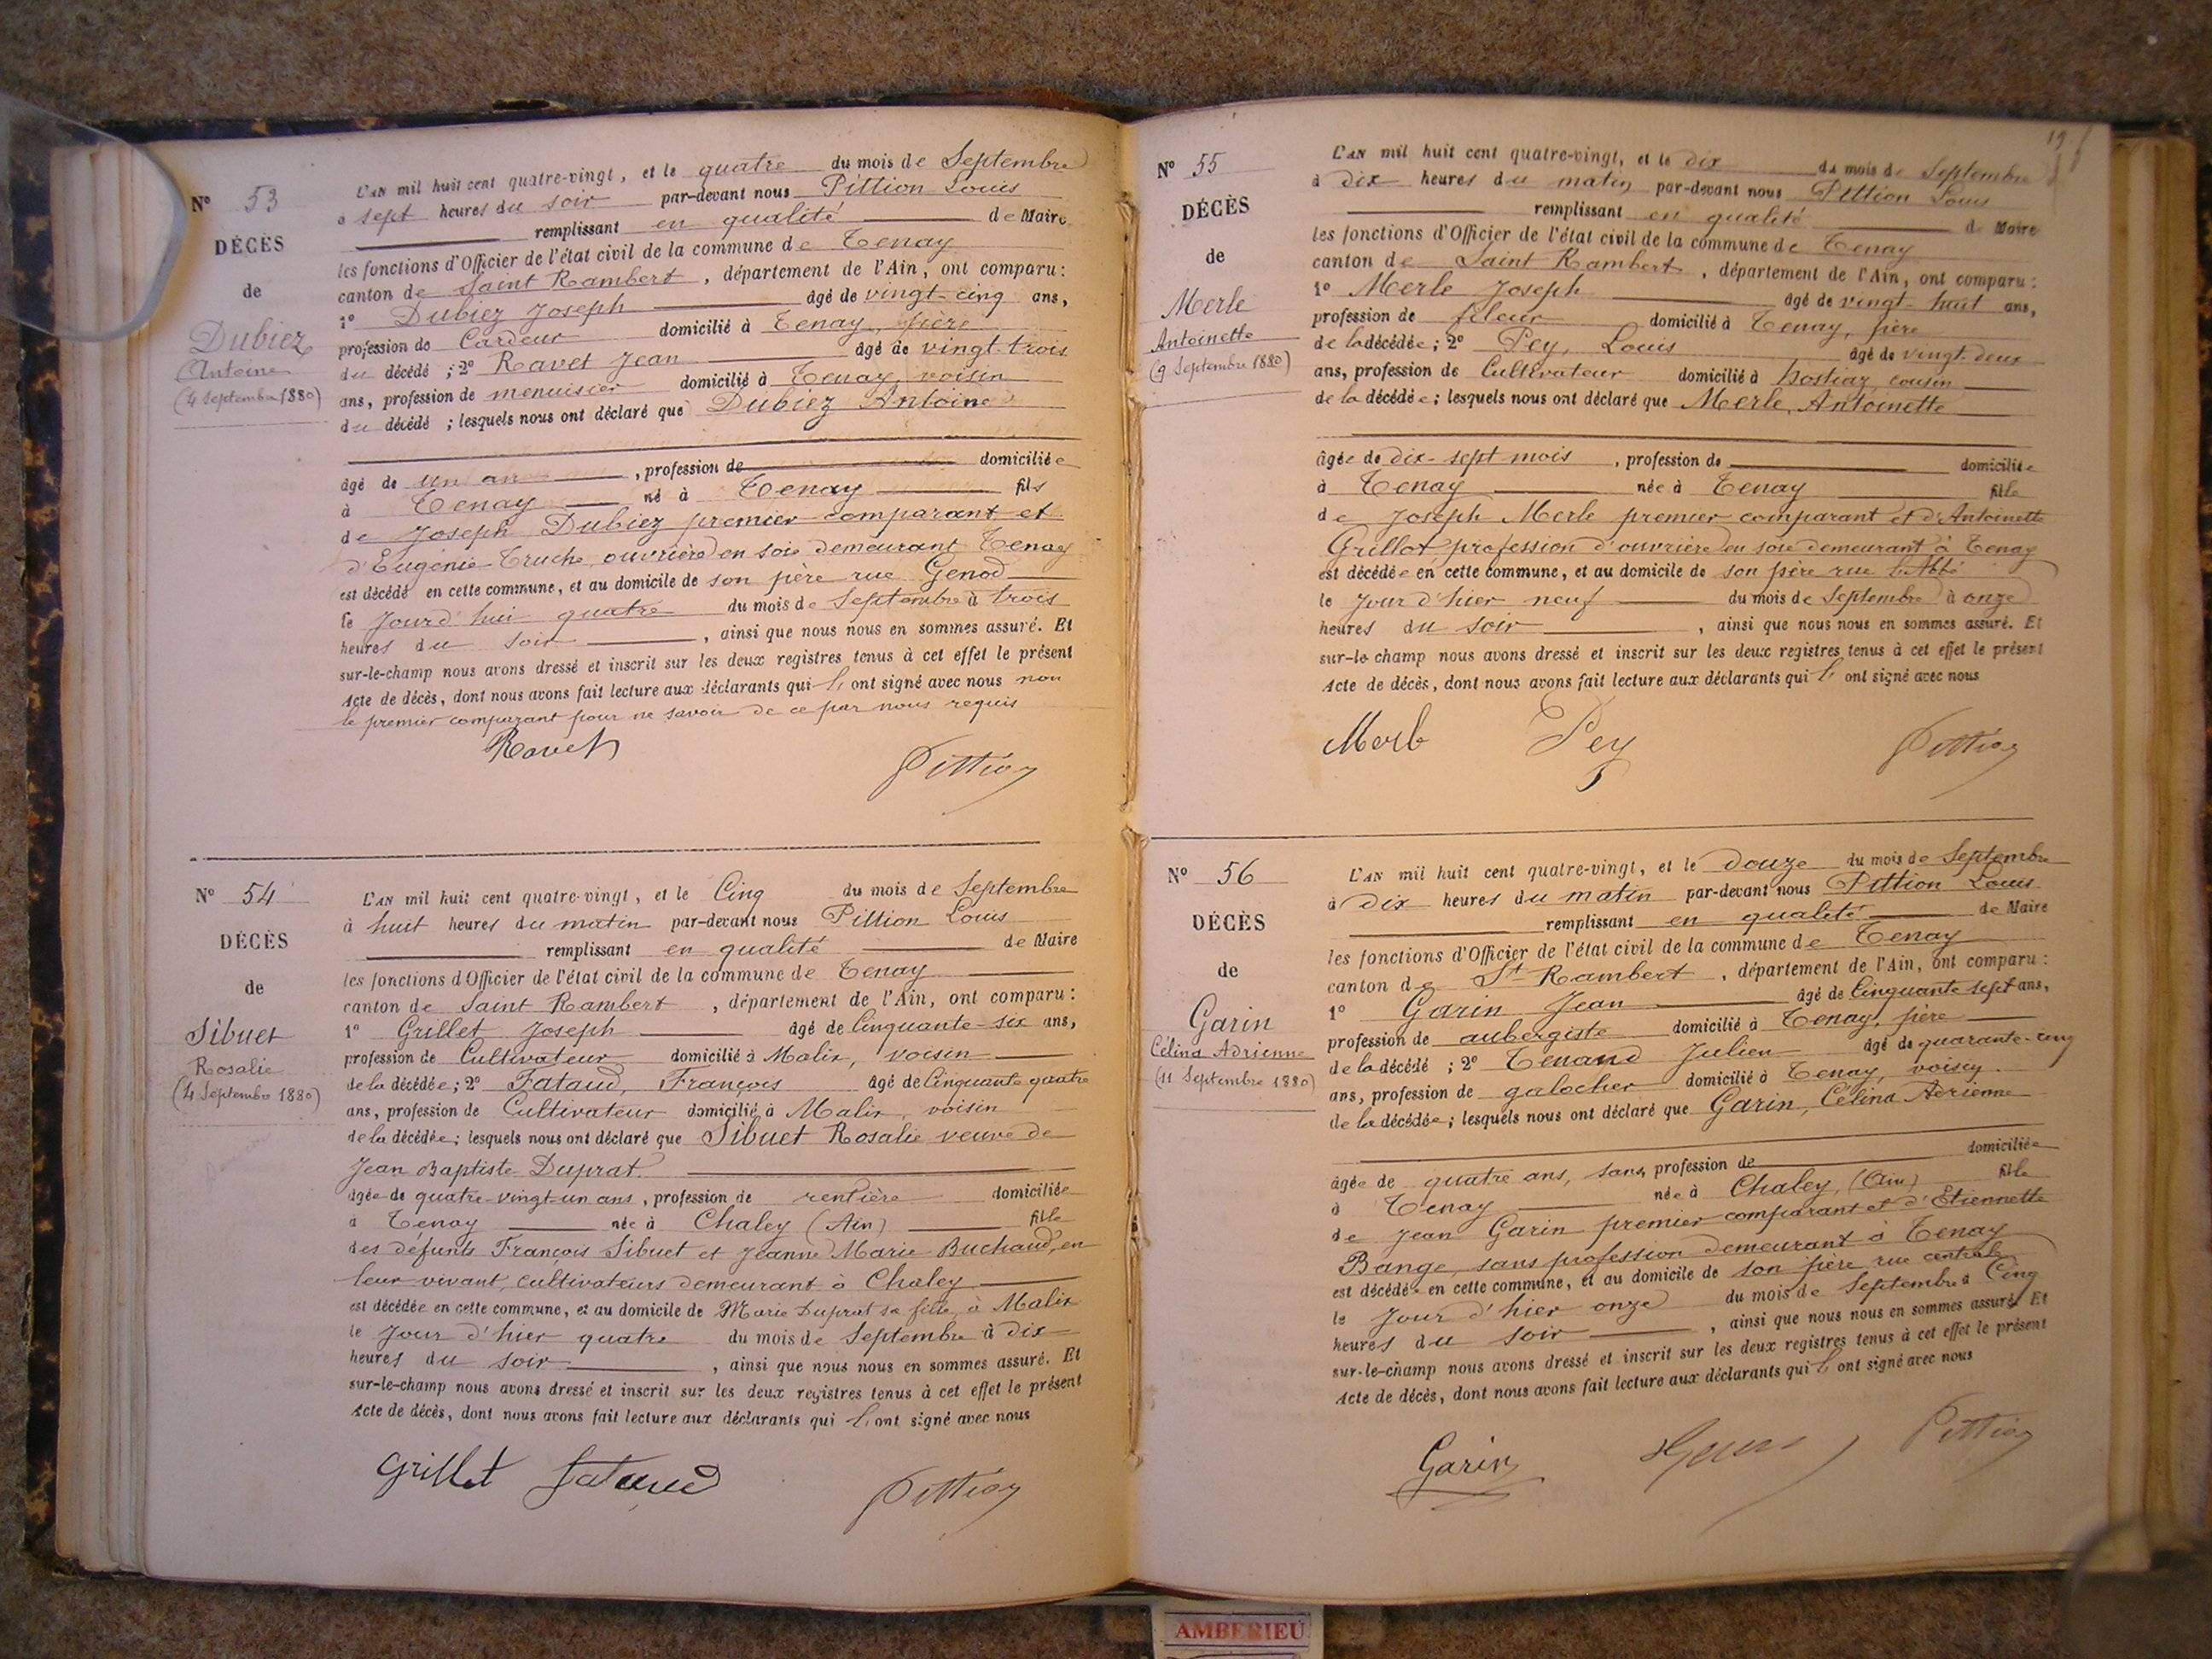 N° 53
DÉCÈS
de
Dubiez
Antoine
(4 Septembre 1880)
L'AN mil huit cent quatre-vingt, et le quatre du mois de Septembre
à sept heures du soir par-devant nous Pittion Louis
remplissant en qualité de Maire
les fonctions d'Officier de l'état civil de la commune de Tenay
canton de Saint Rambert, département de l'Ain, ont comparu :
1° Dubiez Joseph âgé de vingt-cinq ans,
profession de Cardeur domicilié à Tenay, père
du décédé ; 2° Ravet Jean âgé de vingt-trois
ans, profession de menuisier domicilié à Tenay, voisin
du décédé ; lesquels nous ont déclaré que Dubiez Antoine
âgé de un an, profession de domicilié
à Tenay né à Tenay fils
de Joseph Dubiez premier comparant et
d'Eugénie Truche, ouvrière en soie demeurant Tenay
est décédé en cette commune, et au domicile de son père rue Genod
le Jour d'hui quatre du mois de Septembre à trois
heures du soir, ainsi que nous nous en sommes assuré. Et
sur-le-champ nous avons dressé et inscrit sur les deux registres tenus à cet effet le présent
Acte de décès, dont nous avons fait lecture aux déclarants qui l' ont signé avec nous non
le premier comparant pour ne savoir de ce par nous requis
Ravet Pittion
N° 54
DÉCÈS
de
Sibuet
Rosalie
(4 Septembre 1880)
L'AN mil huit cent quatre-vingt, et le Cinq du mois de Septembre
à huit heures du matin par-devant nous Pittion Louis
remplissant en qualité de Maire
les fonctions d'Officier de l'état civil de la commune de Tenay
canton de Saint Rambert, département de l'Ain, ont comparu :
1° Grillet Joseph âgé de Cinquante-six ans,
profession de Cultivateur domicilié à Malix, voisin
de la décédée ; 2° Fataud, François âgé de Cinquante quatre
ans, profession de Cultivateur domicilié à Malix, voisin
de la décédée ; lesquels nous ont déclaré que Sibuet Rosalie veuve de
Jean Baptiste Duprat
âgée de quatre-vingt-un ans, profession de rentière domiciliée
à Tenay née à Chaley (Ain) fille
des défunts François Sibuet et Jeanne Marie Buchaud, en
leur vivant, cultivateurs demeurant à Chaley
est décédée en cette commune, et au domicile de Marie Duprat sa fille, à Malix
le Jour d'hier quatre du mois de Septembre à dix
heures du soir, ainsi que nous nous en sommes assuré. Et
sur-le-champ nous avons dressé et inscrit sur les deux registres tenus à cet effet le présent
Acte de décès, dont nous avons fait lecture aux déclarants qui l' ont signé avec nous
Grillet Fataud Pittion
19
N° 55
DÉCÈS
de
Merle
Antoinette
(9 Septembre 1880)
L'AN mil huit cent quatre-vingt, et le dix du mois de Septembre
à dix heures du matin par-devant nous Pittion Louis
remplissant en qualité de Maire
les fonctions d'Officier de l'état civil de la commune de Tenay
canton de Saint Rambert, département de l'Ain, ont comparu :
1° Merle Joseph âgé de vingt-huit ans,
profession de fileur domicilié à Tenay, père
de la décédée ; 2° Pey, Louis âgé de vingt-deux
ans, profession de Cultivateur domicilié à hostiaz, cousin
de la décédée ; lesquels nous ont déclaré que Merle, Antoinette
âgée de dix-sept mois, profession de domiciliée
à Tenay née à Tenay fille
de Joseph Merle premier comparant et d'Antoinette
Grillot profession d'ouvrière en soie demeurant à Tenay
est décédée en cette commune, et au domicile de son père rue l'Abbé
le Jour d'hier neuf du mois de Septembre à onze
heures du soir, ainsi que nous nous en sommes assuré. Et
sur-le champ nous avons dressé et inscrit sur les deux registres tenus à cet effet le présent
Acte de décès, dont nous avons fait lecture aux déclarants qui l' ont signé avec nous
Merle Pey Pittion
N° 56
DÉCÈS
de
Garin
Célina Adrienne
(11 Septembre 1880)
L'AN mil huit cent quatre-vingt, et le douze du mois de Septembre
à dix heures du matin par-devant nous Pittion Louis
remplissant en qualité de Maire
les fonctions d'Officier de l'état civil de la commune de Tenay
canton de St Rambert, département de l'Ain, ont comparu :
1° Garin Jean âgé de Cinquante sept ans,
profession de aubergiste domicilié à Tenay, père
de la décédé ; 2° Tenand Julien âgé de quarante-cinq
ans, profession de galocher domicilié à Tenay, voisin
de la décédée ; lesquels nous ont déclaré que Garin, Célina Adrienne
âgée de quatre ans, sans profession de domiciliée
à Tenay née à Chaley, (Ain) fille
de Jean Garin premier comparant et d'Etiennette
Bange, sans profession demeurant à Tenay
est décédée en cette commune, et au domicile de son père rue centrale
le Jour d'hier onze du mois de Septembre à Cinq
heures du soir, ainsi que nous nous en sommes assuré. Et
sur-le-champ nous avons dressé et inscrit sur les deux registres tenus à cet effet le présent
Acte de décès, dont nous avons fait lecture aux déclarants qui l' ont signé avec nous
Garin Pittion
AMBERIEU